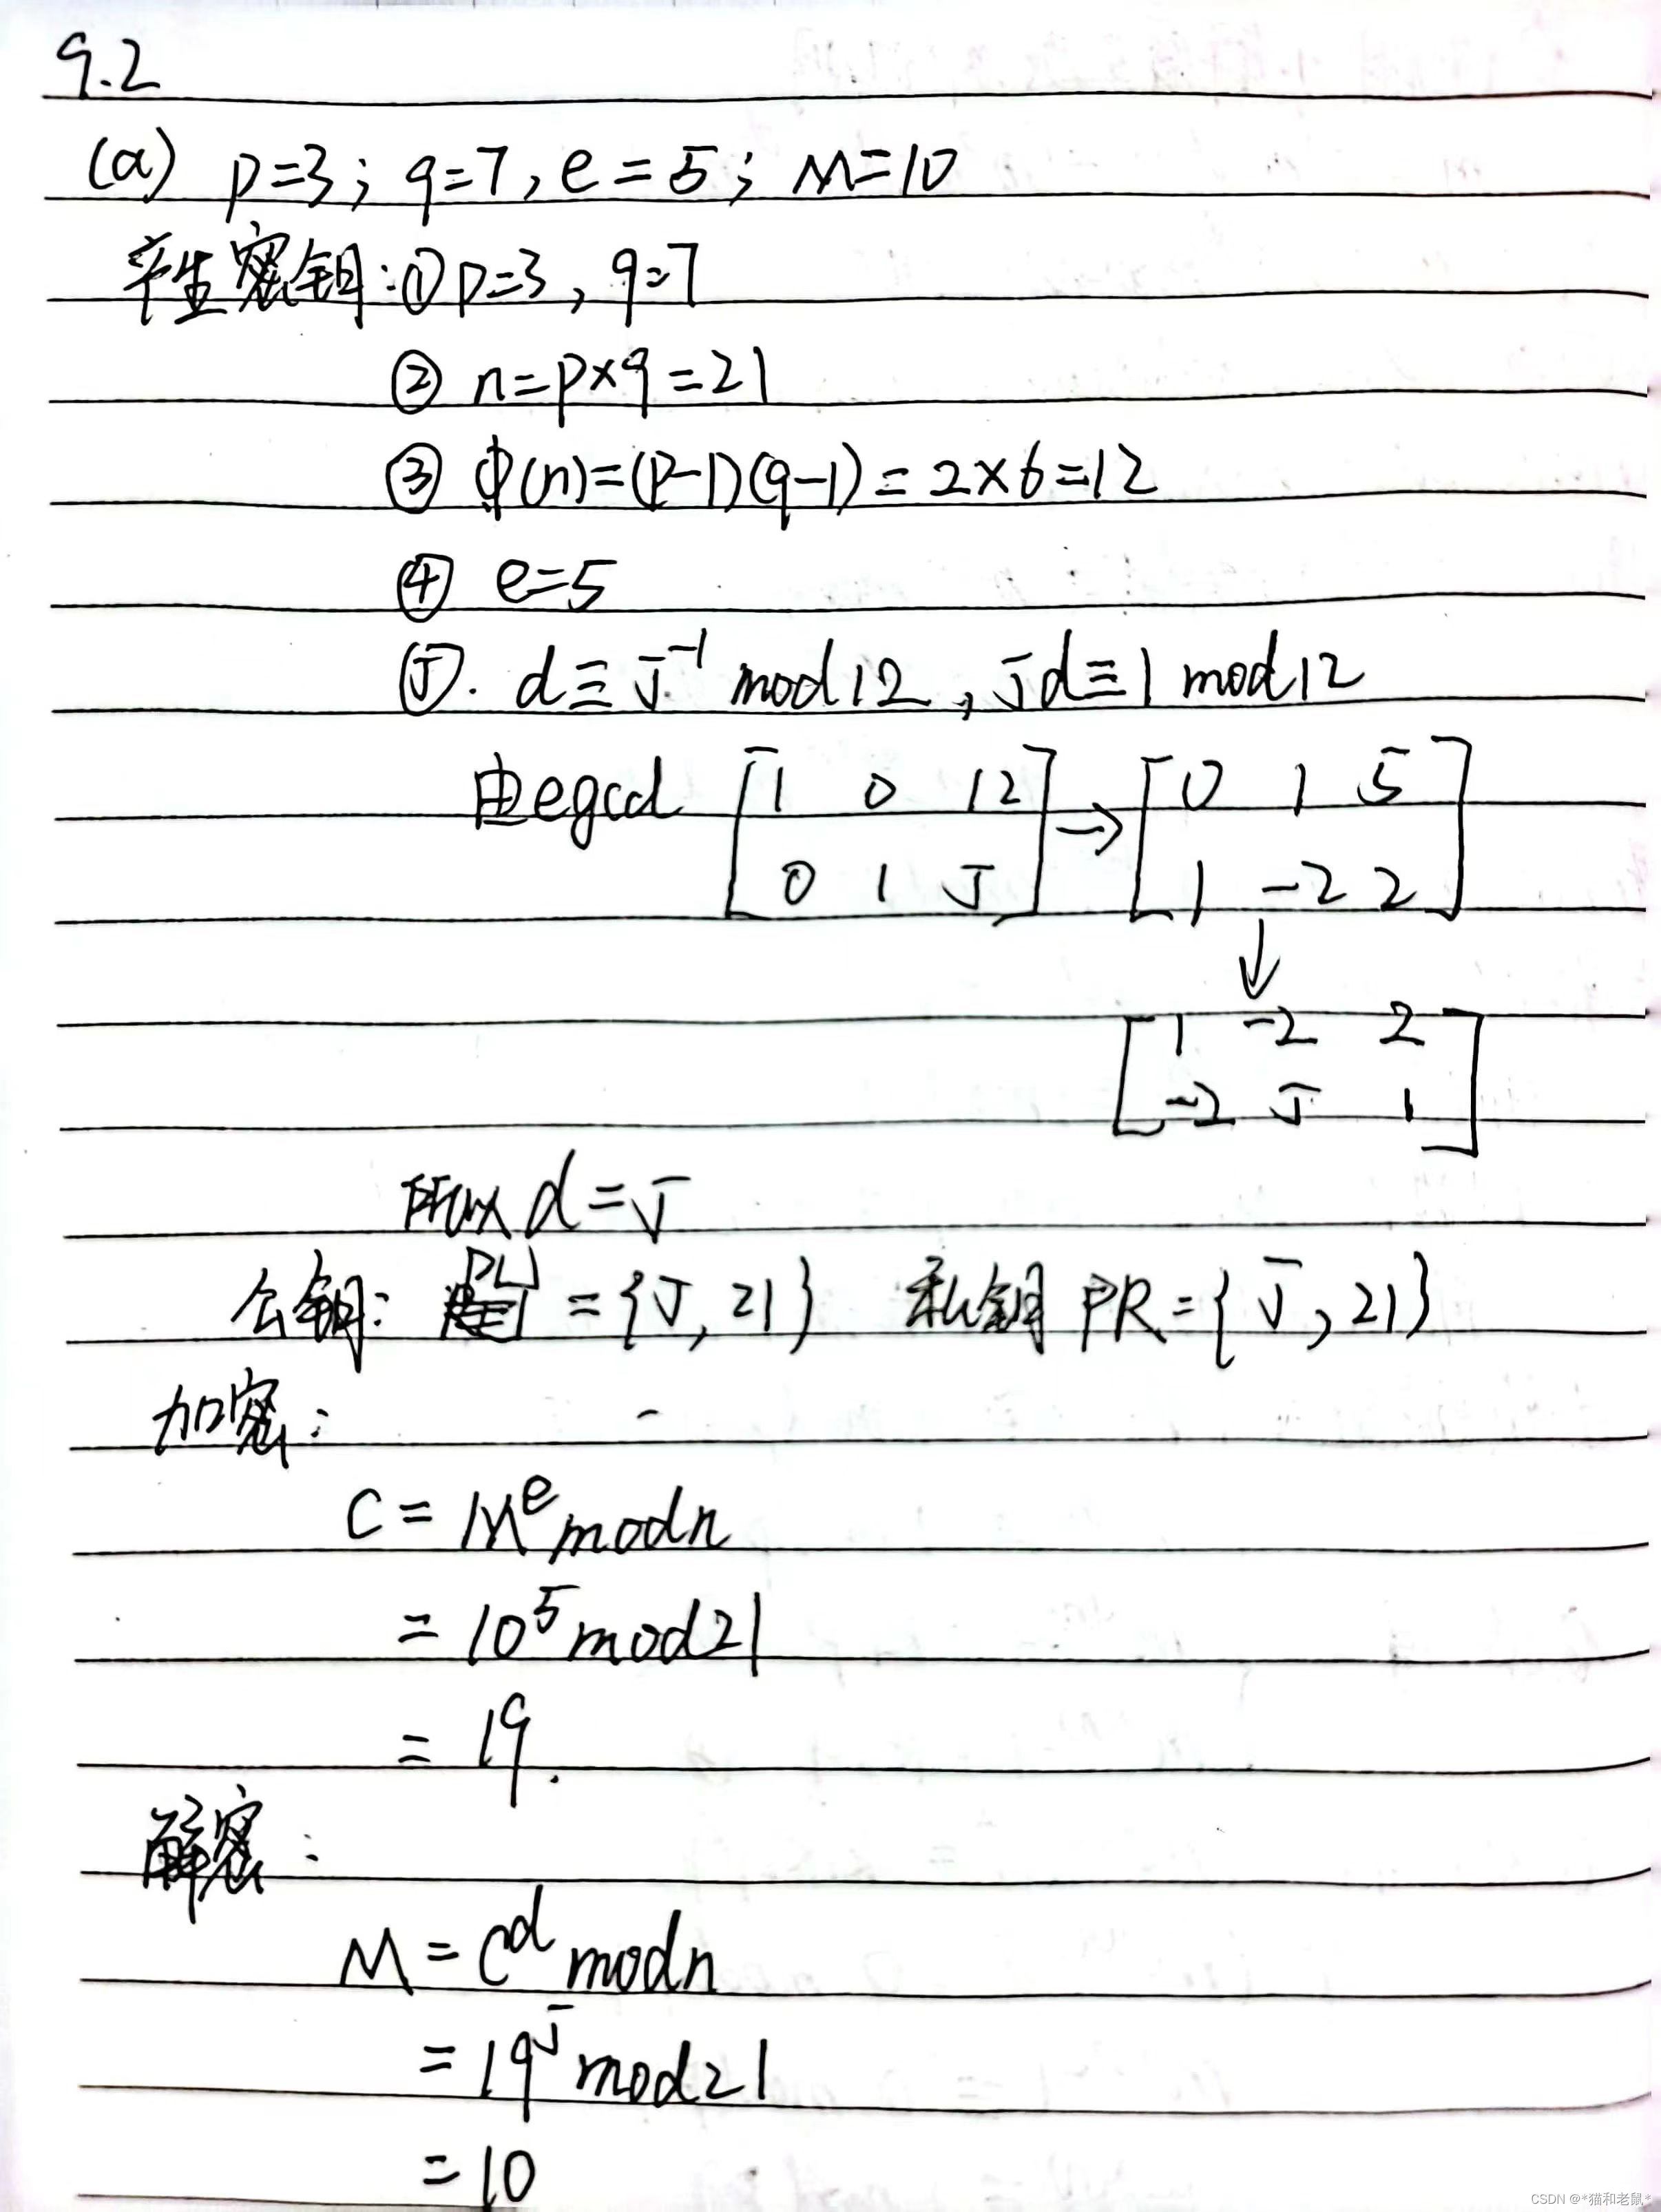 9.2
(a) p=3; q=7, e=5; M=10
产生密钥:①p=3, q=7
② n=p×q=21
③ φ(n)=(p-1)(q-1)=2×6=12
④ e=5
⑤. d≡5⁻¹ mod12, 5d≡1 mod12
由egcd [1 0 12 → [0 1 5
0 1 5] 1 -2 2]
↓
[1 -2 2
-2 5 1]
所以d=5
公钥: PU={5, 21} 私钥 PR={5, 21}
加密:
C=Mᵉmodn
=10⁵mod21
=19.
解密:
M=Cᵈmodn
=19⁵mod21
=10
CSDN @*猫和老鼠*